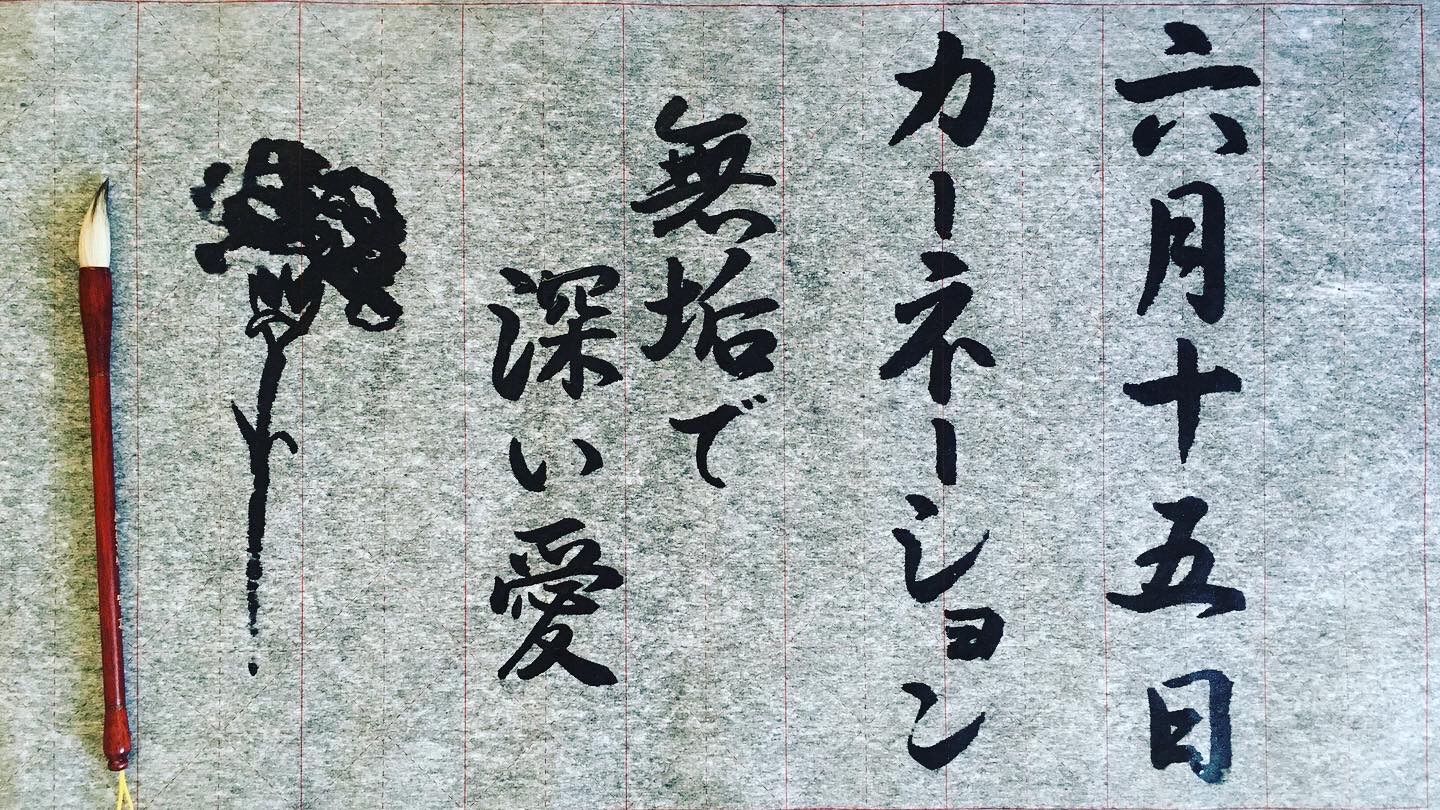 六月十五日
カーネーション
無垢で
深い愛